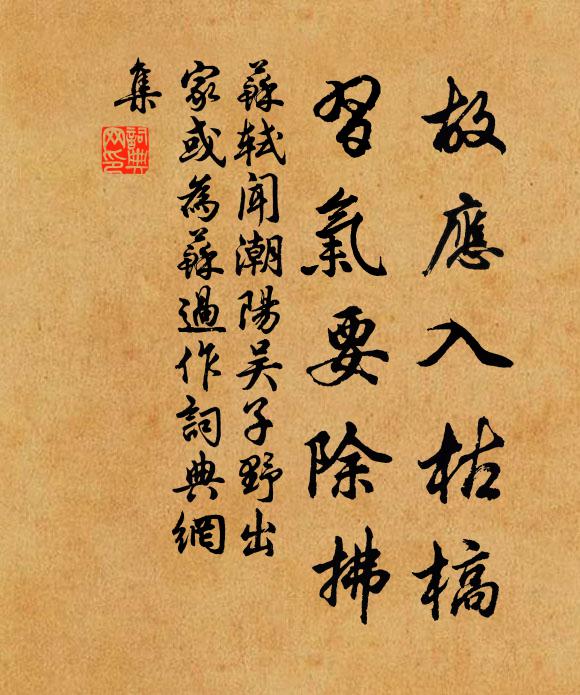 故應入枯槁
習氣要除拂
蘇軾聞潮陽吴子野出
家或為蘇過作詞典網
集
詞典网印